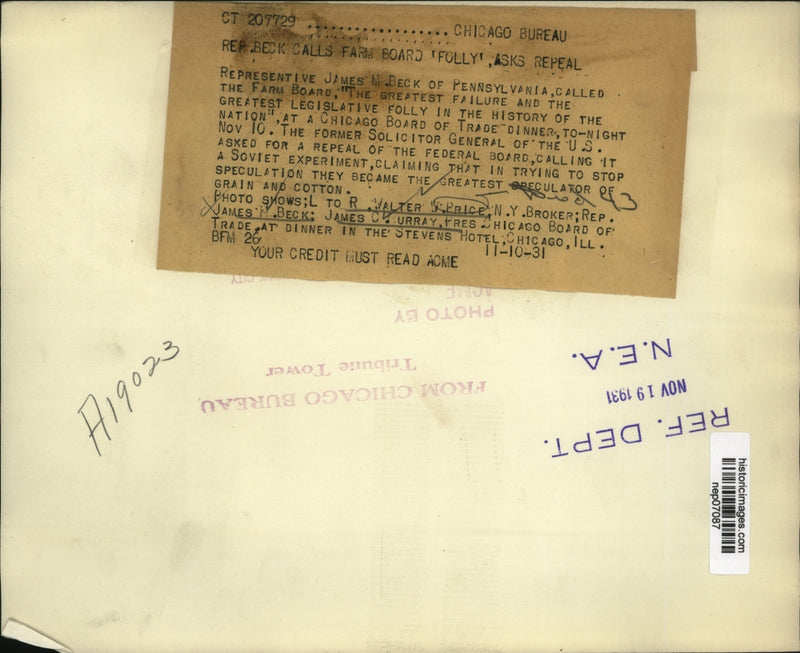 CT 207729 .................... CHICAGO BUREAU
REP. BECK CALLS FARM BOARD 'FOLLY', ASKS REPEAL
REPRESENTIVE JAMES M.BECK OF PENNSYLVANIA, CALLED
THE FARM BOARD, "THE GREATEST FAILURE AND THE
GREATEST LEGISLATIVE FOLLY IN THE HISTORY OF THE
NATION", AT A CHICAGO BOARD OF TRADE DINNER, TO-NIGHT
NOV 10. THE FORMER SOLICITOR GENERAL OF THE U.S.
ASKED FOR A REPEAL OF THE FEDERAL BOARD, CALLING IT
A SOVIET EXPERIMENT, CLAIMING THAT IN TRYING TO STOP
SPECULATION THEY BECAME THE GREATEST SPECULATOR OF
GRAIN AND COTTON.
PHOTO SHOWS; L TO R. WALTER J. PRICE, N.Y. BROKER; REP.
JAMES M. BECK; JAMES C. MURRAY, PRES CHICAGO BOARD OF
TRADE, AT DINNER IN THE STEVENS HOTEL, CHICAGO, ILL.
BFM 26 11-10-31
YOUR CREDIT MUST READ ACME
ACME
PHOTO BY
Tribune Tower
FROM CHICAGO BUREAU
A19023
N.E.A.
NOV 19 1931
REF. DEPT.
historicimages.com
nep07087